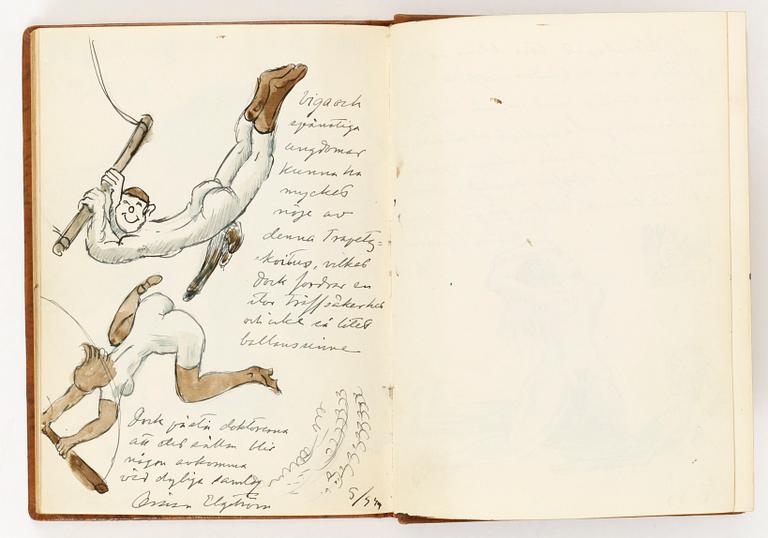 Viga och
spänstiga
ungdomar
kunna ha
mycket
nöje av
denna Trapetz=
-koitus, vilket
dock fordrar en
stor träffsäkerhet
och icke så litet
ballanssinne
Dock påstå doktorerna
att det sällan blir
någon avkomma
vid dylika samlag
Ossian Elgström
5/